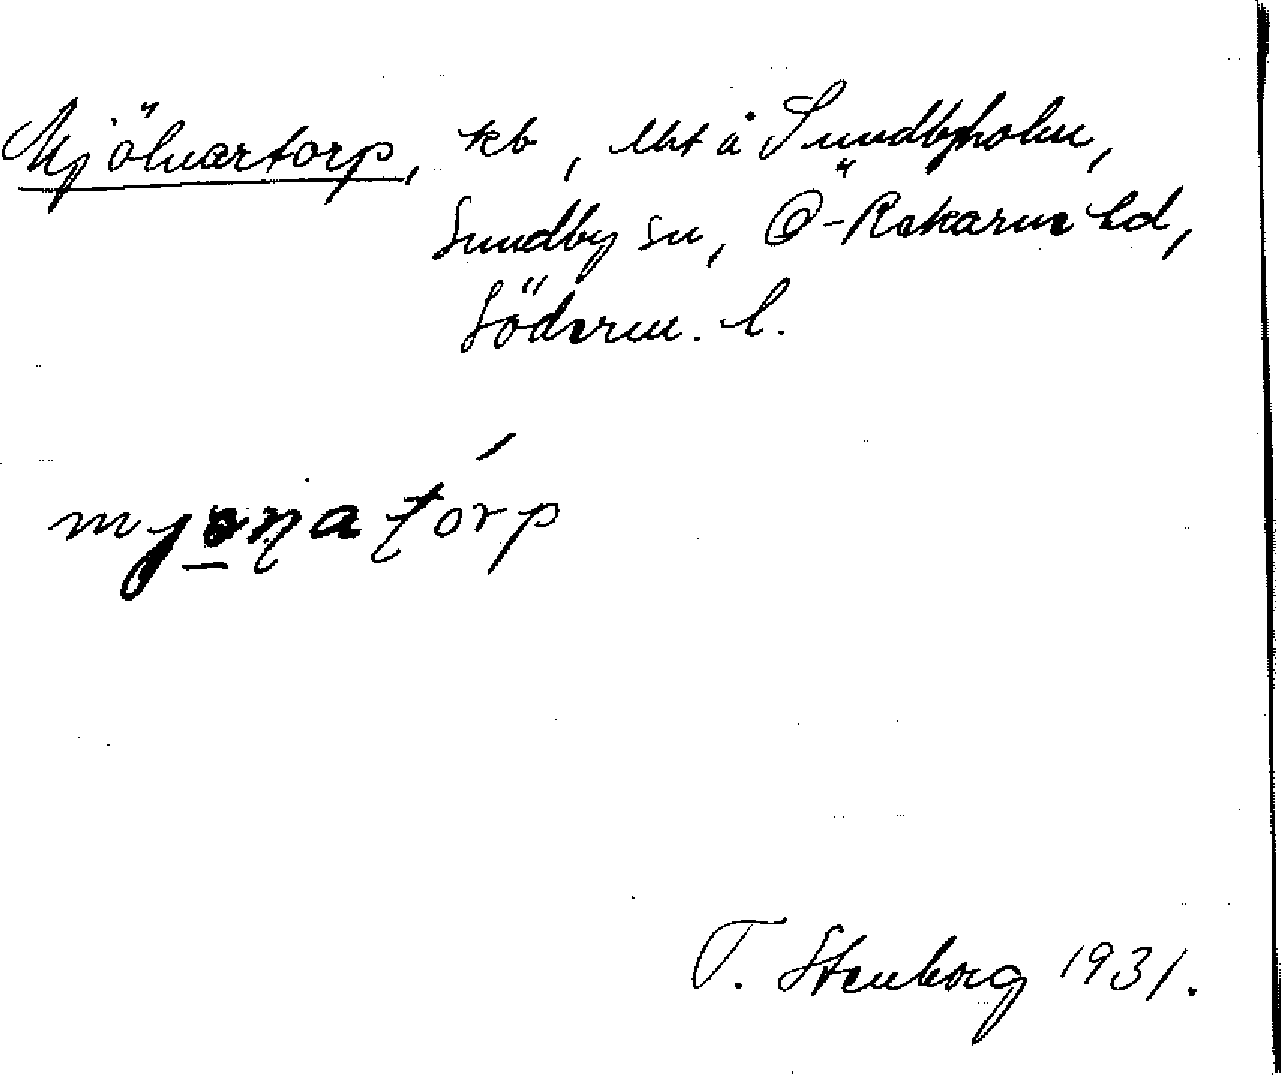 Mjölnartorp, kb, lht å Sundbyholm,
Sundby sn, Ö-Rekarne hd,
Söderm. l.
T. Stenborg 1931.